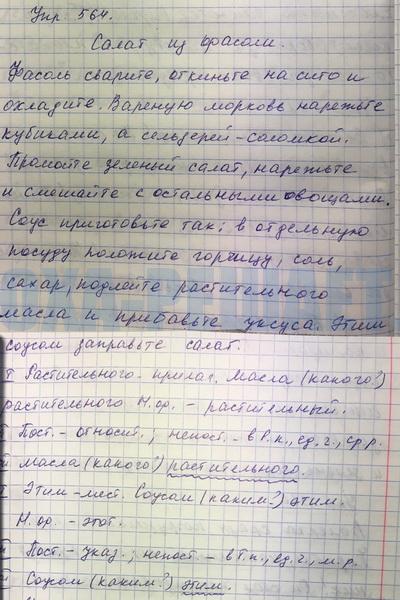 Упр 564.
Салат из фасоли.
Фасоль сварите, откиньте на сито и
охладите. Вареную морковь нарежьте
кубиками, а сельдерей-соломкой.
Промойте зеленый салат, нарежьте
и смешайте с остальными овощами.
Соус приготовьте так: в отдельную
посуду положите горчицу, соль,
сахар, подлейте растительного
масла и прибавьте уксуса. Этим
соусом заправьте салат.
I Растительного - прилаг. Масла (какого?)
растительного Н.ф. - растительный.
II Пост. - относит.; непост. - в Р.п., ед.ч., ср.р.
III масла (какого?) растительного.
I Этим - мест. Соусом (каким?) этим.
Н.ф. - этот.
II Пост. - указ.; непост. - в Т.п., ед.ч., м.р.
III Соусом (каким?) этим.